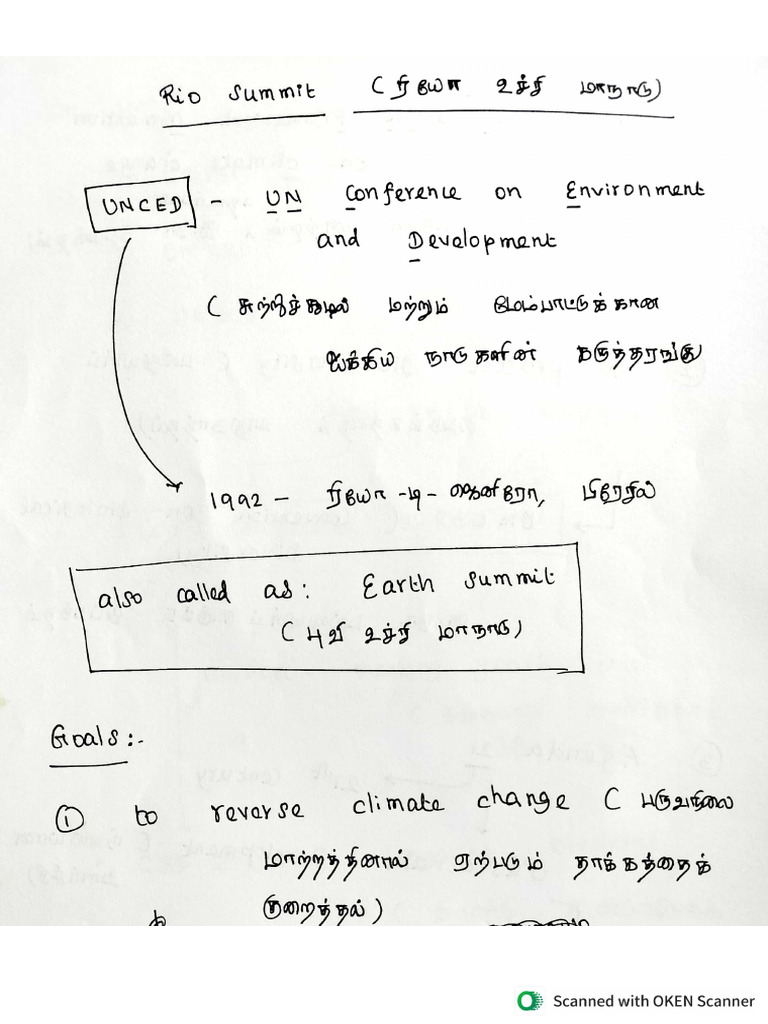 Rio Summit (ரியோ உச்சி மாநாடு)
UNCED - UN Conference on Environment
and Development
(சுற்றுச்சூழல் மற்றும் மேம்பாட்டுக்கான
ஐக்கிய நாடுகளின் கருத்தரங்கு
1992 - ரியோ-டி-ஜெனிரோ, பிரேசில்
also called as: Earth Summit
(புவி உச்சி மாநாடு)
Goals:-
① to reverse climate change (பருவநிலை
மாற்றத்தினால் ஏற்படும் தாக்கத்தைக்
குறைத்தல்)
Scanned with OKEN Scanner